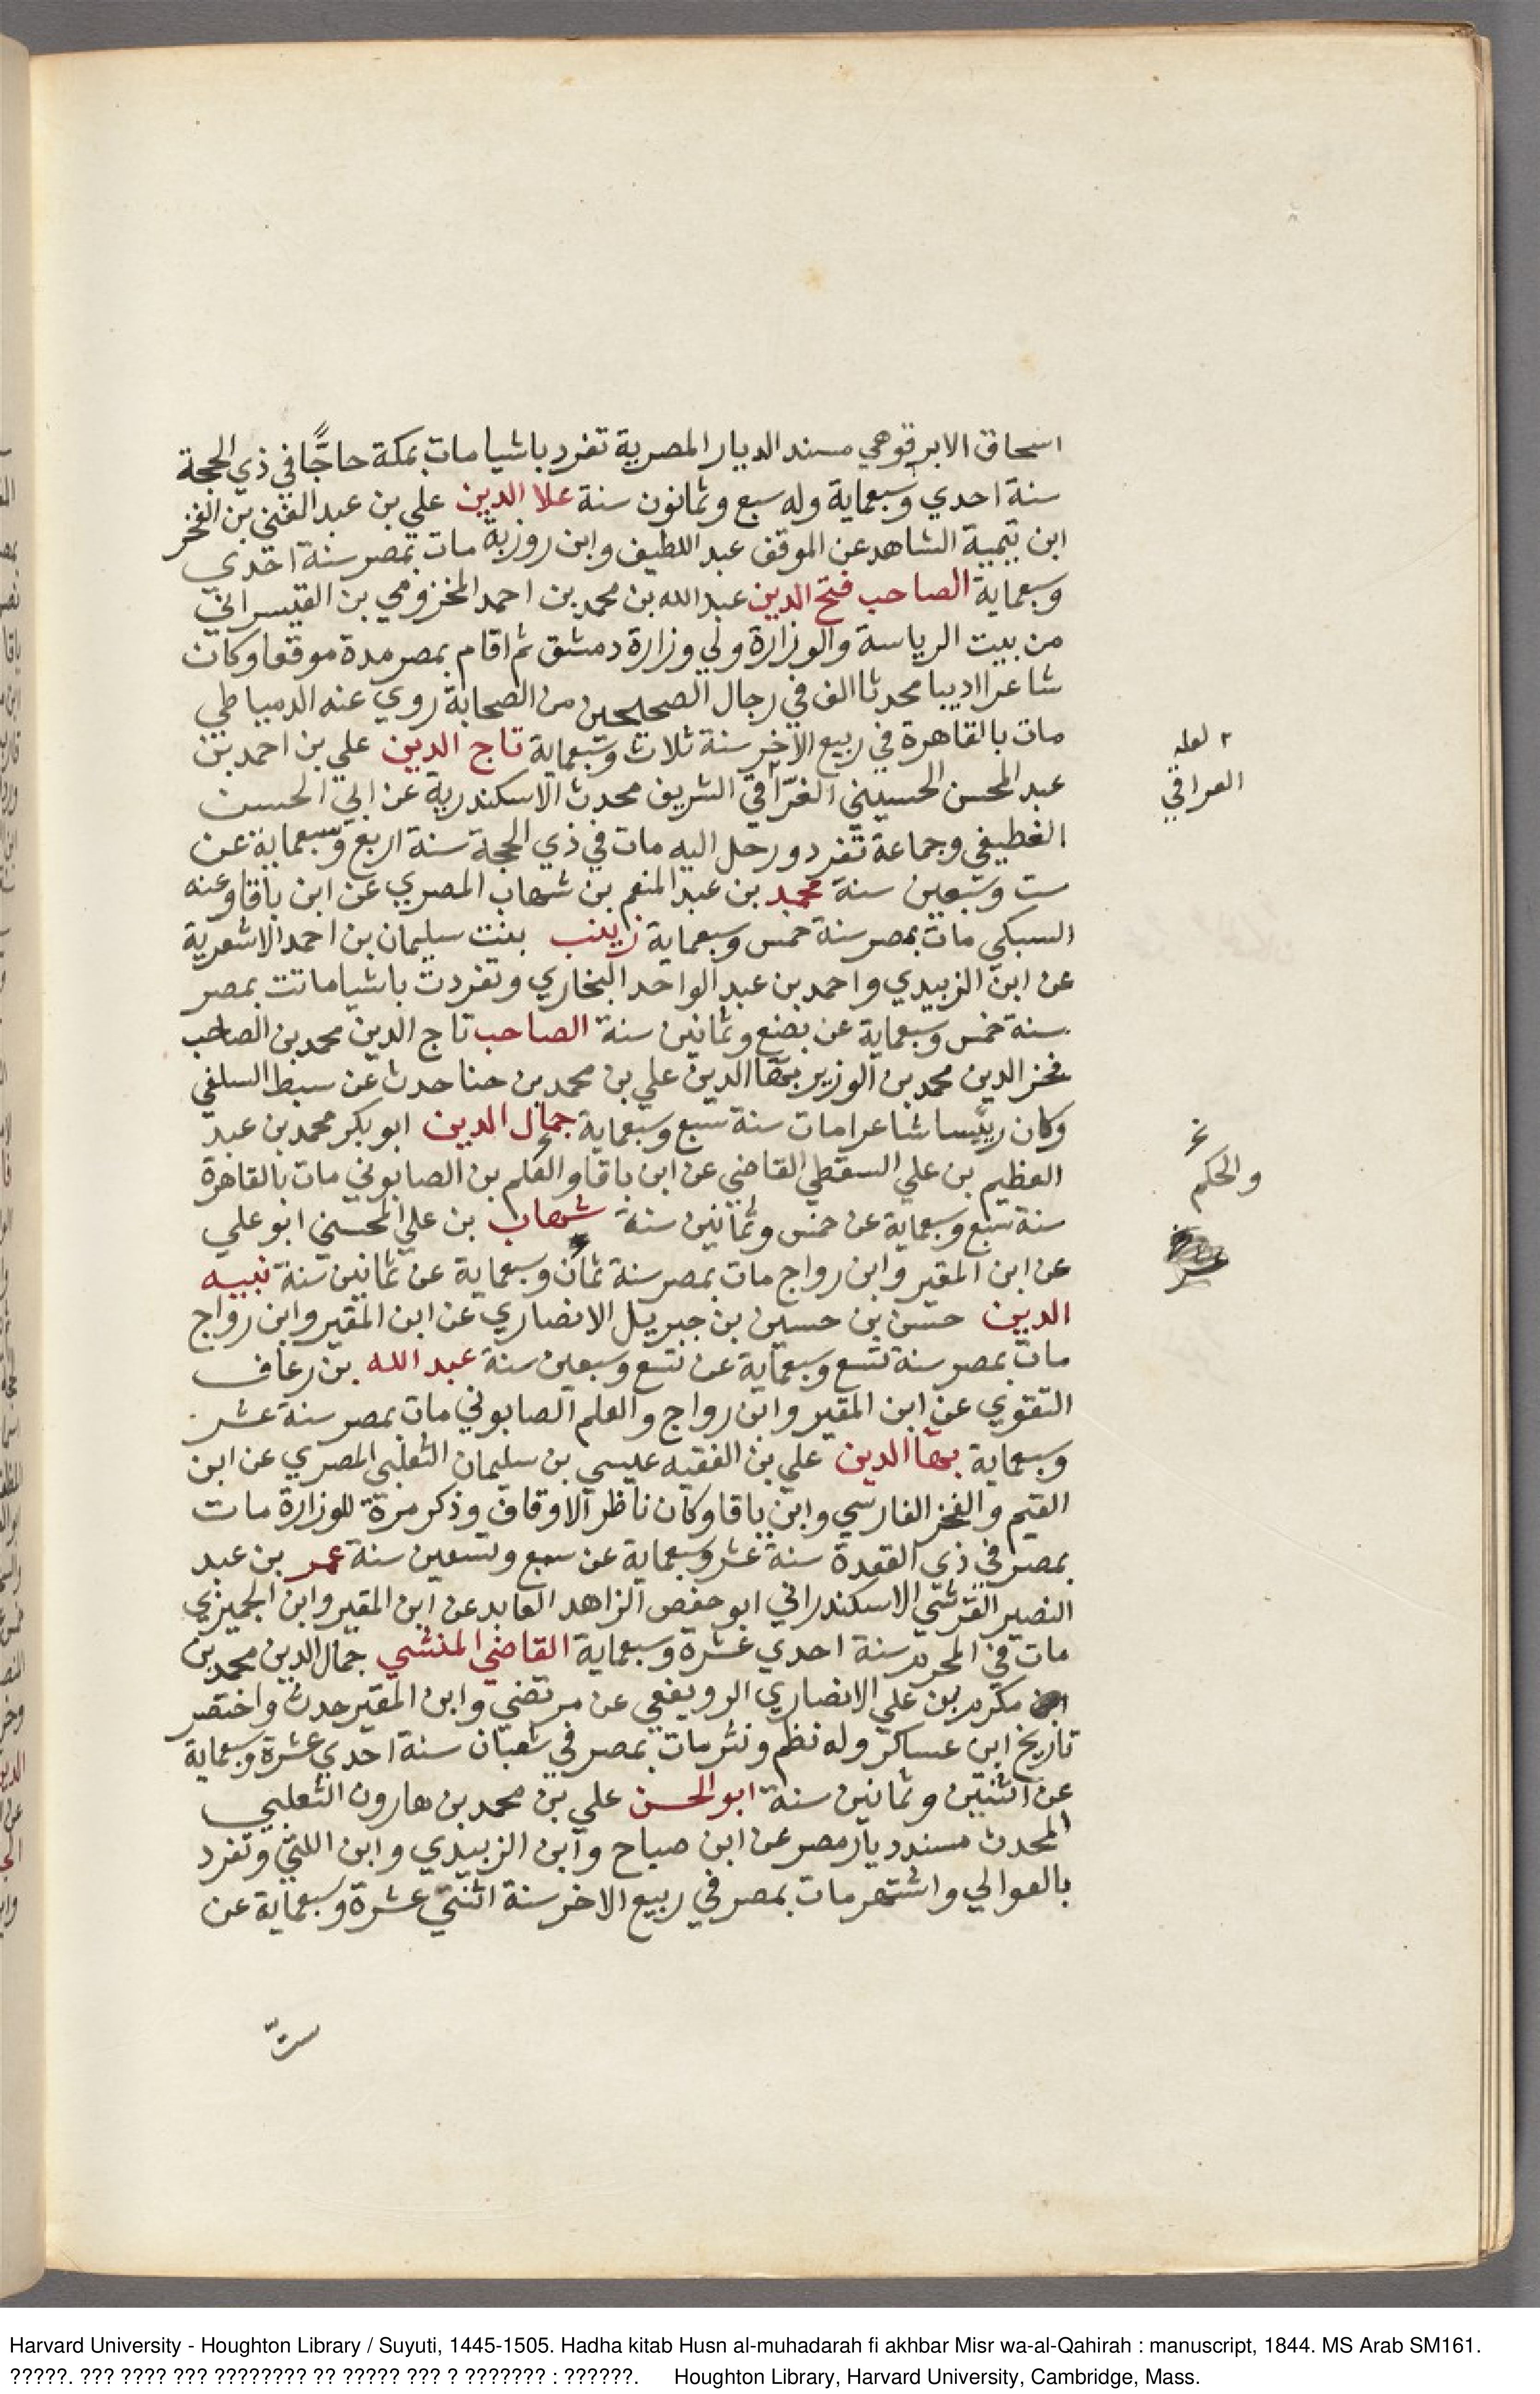 اسحاق الابرقوهي مسند الديار المصرية تفرد باشيا مات بمكة حاجًّا في ذي الحجة
سنة احدي وسبعماية وله سبع وثمانون سنة علا الدين علي بن عبد الغني بن الفخر
ابن تيمية الشاهد عن الموفق عبد اللطيف وابن روزبة مات بمصر سنة احدي
وسبعماية الصاحب فتح الدين عبد الله بن محمد بن احمد المخزومي بن القيسراني
من بيت الرياسة والوزارة ولي وزارة دمشق ثم اقام بمصر مدة موقعا وكان
شاعرا اديبا محدثا الف في رجال الصحيحين من الصحابة روي عنه الدمياطي
مات بالقاهرة في ربيع الاخر سنة ثلاث وسبعماية تاج الدين علي بن احمد بن
عبد المحسن الحسيني الغرّافي الشريف محدث الاسكندرية عن ابي الحسن
٢ لعله
العراقي
القطيفي وجماعة تفرد ورحل اليه مات في ذي الحجة سنة اربع وسبعماية عن
ست وسبعين سنة محمد بن عبد المنعم بن شهاب المصري عن ابن باقا وعنه
السبكي مات بمصر سنة خمس وسبعماية زينب بنت سليمان بن احمد الاشعرية
عن ابن الزبيدي واحمد بن عبد الواحد البخاري وتفردت باشيا ماتت بمصر
سنة خمس وسبعماية عن بضع وثمانين سنة الصاحب تاج الدين محمد بن الصاحب
فخر الدين محمد بن الوزير بهآ الدين علي بن محمد بن حنا حدث عن سبط السلفي
وكان رييسا شاعرا مات سنة سبع وسبعماية جمال الدين ابو بكر محمد بن عبد
العظيم بن علي السقطي القاضي عن ابن باقا والعلم بن الصابوني مات بالقاهرة
والحكم
سنة سبع وسبعماية عن خمس وثمانين سنة شهاب بن علي المحسني ابو علي
عن ابن المقير وابن رواج مات بمصر سنة ثمان وسبعماية عن ثمانين سنة نبيه
الدين حسن بن حسين بن جبريل الانصاري عن ابن المقير وابن رواج
مات بمصر سنة تسع وسبعماية عن تسع وسبعين سنة عبد الله بن رعاف
التقوي عن ابن المقير وابن رواج والعلم الصابوني مات بمصر سنة عشر
وسبعماية بهآ الدين علي بن الفقيه عيسي بن سليمان الثعلبي المصري عن ابن
القيم والفخر الفارسي وابن باقا وكان ناظر الاوقاف وذكر مرة للوزارة مات
بمصر في ذي القعدة سنة عشر وسبعماية عن سبع وتسعين سنة عمر بن عبد
النصير القرشي الاسكندراني ابو حفص الزاهد العابد عن ابن المقير وابن الجميزي
مات في المحرم سنة احدي عشرة وسبعماية القاضي المنشي جمال الدين محمد بن
مكرم بن علي الانصاري الرويفعي عن مرتضي وابن المقير حدث واختصر
تاريخ ابن عساكر وله نظم ونثر مات بمصر في شعبان سنة احدي عشرة وسبعماية
عن اثنين وثمانين سنة ابو الحسن علي بن محمد بن هارون الثعلبي
المحدث مسند ديار مصر عن ابن صباح وابن الزبيدي وابن اللتي وتفرد
بالعوالي واشتهر مات بمصر في ربيع الاخر سنة اثنتي عشرة وسبعماية عن
ستّ
Harvard University - Houghton Library / Suyuti, 1445-1505. Hadha kitab Husn al-muhadarah fi akhbar Misr wa-al-Qahirah : manuscript, 1844. MS Arab SM161.
?????. ??? ???? ??? ???????? ?? ????? ??? ? ??????? : ??????. Houghton Library, Harvard University, Cambridge, Mass.